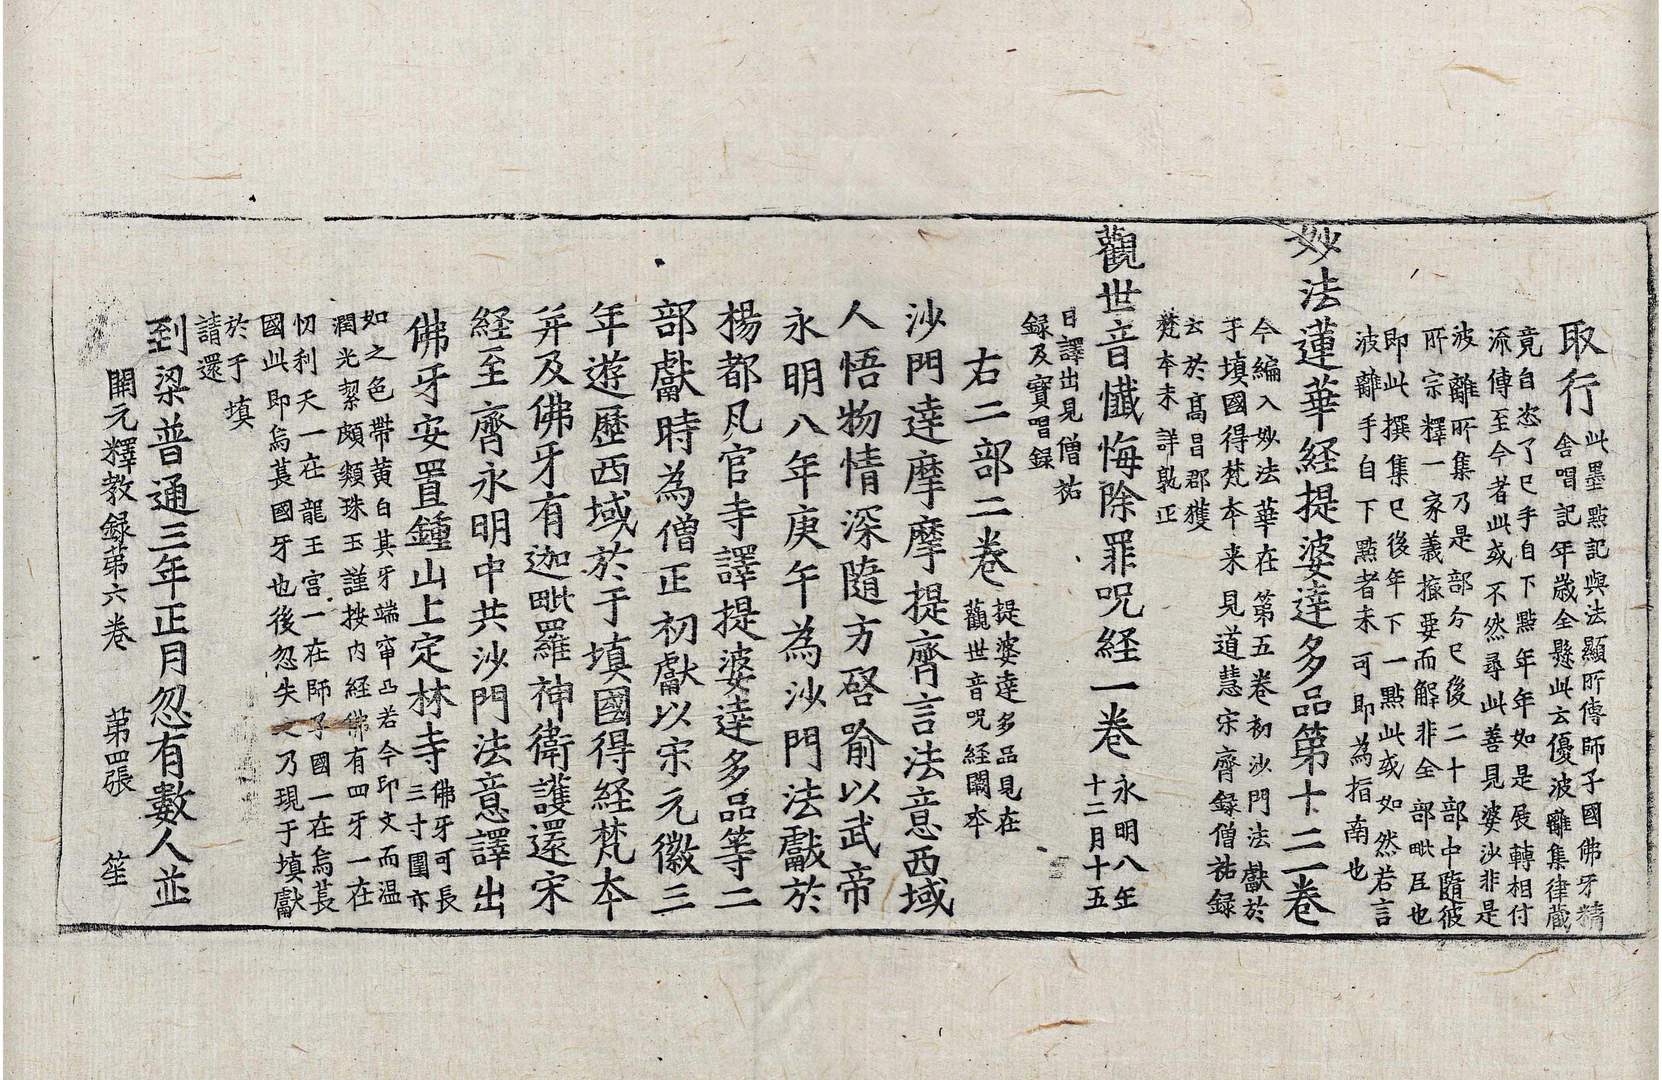 取行此墨點記與法顯所傳師子國佛牙精
舍唱記年歲全懸此云優波離集律藏
竟自恣了已手自下點年年如是展轉相付
流傳至今者此或不然尋此善見婆沙非是
波離所集乃是部分已後二十部中隨彼
所宗釋一家義據要而解非全部毗尼也
即此撰集已後年下一點此或如然若言
波離手自下點者未可即為指南也
妙法蓮華経提婆達多品第十二一卷
今編入妙法華在第五卷初沙門法獻於
于填國得梵本来見道慧宋齊録僧祐録
云於髙昌郡獲
梵本未詳孰正
觀世音懺悔除罪呪経一卷永明八年
十二月十五
日譯出見僧祐
録及寶唱録
右二部二卷提婆達多品見在
觀世音呪経闕本
沙門達摩摩提齊言法意西域
人悟物情深隨方啓喻以武帝
永明八年庚午為沙門法獻於
楊都凡官寺譯提婆達多品等二
部獻時為僧正初獻以宋元徽三
年遊歴西域於于填國得経梵本
并及佛牙有迦毗羅神衛護還宋
経至齊永明中共沙門法意譯出
佛牙安置鍾山上定林寺佛牙可長
三寸圍亦
如之色帶黄白其牙端窂凸若今印文而温
潤光㓗頗類珠玉謹按内経佛有四牙一在
忉利天一在龍王宮一在師子國一在烏萇
國此即烏萇國牙也後忽失之乃現于填獻
於于填
請還
到梁普通三年正月忽有數人並
開元釋教録第六卷 第四張 笙